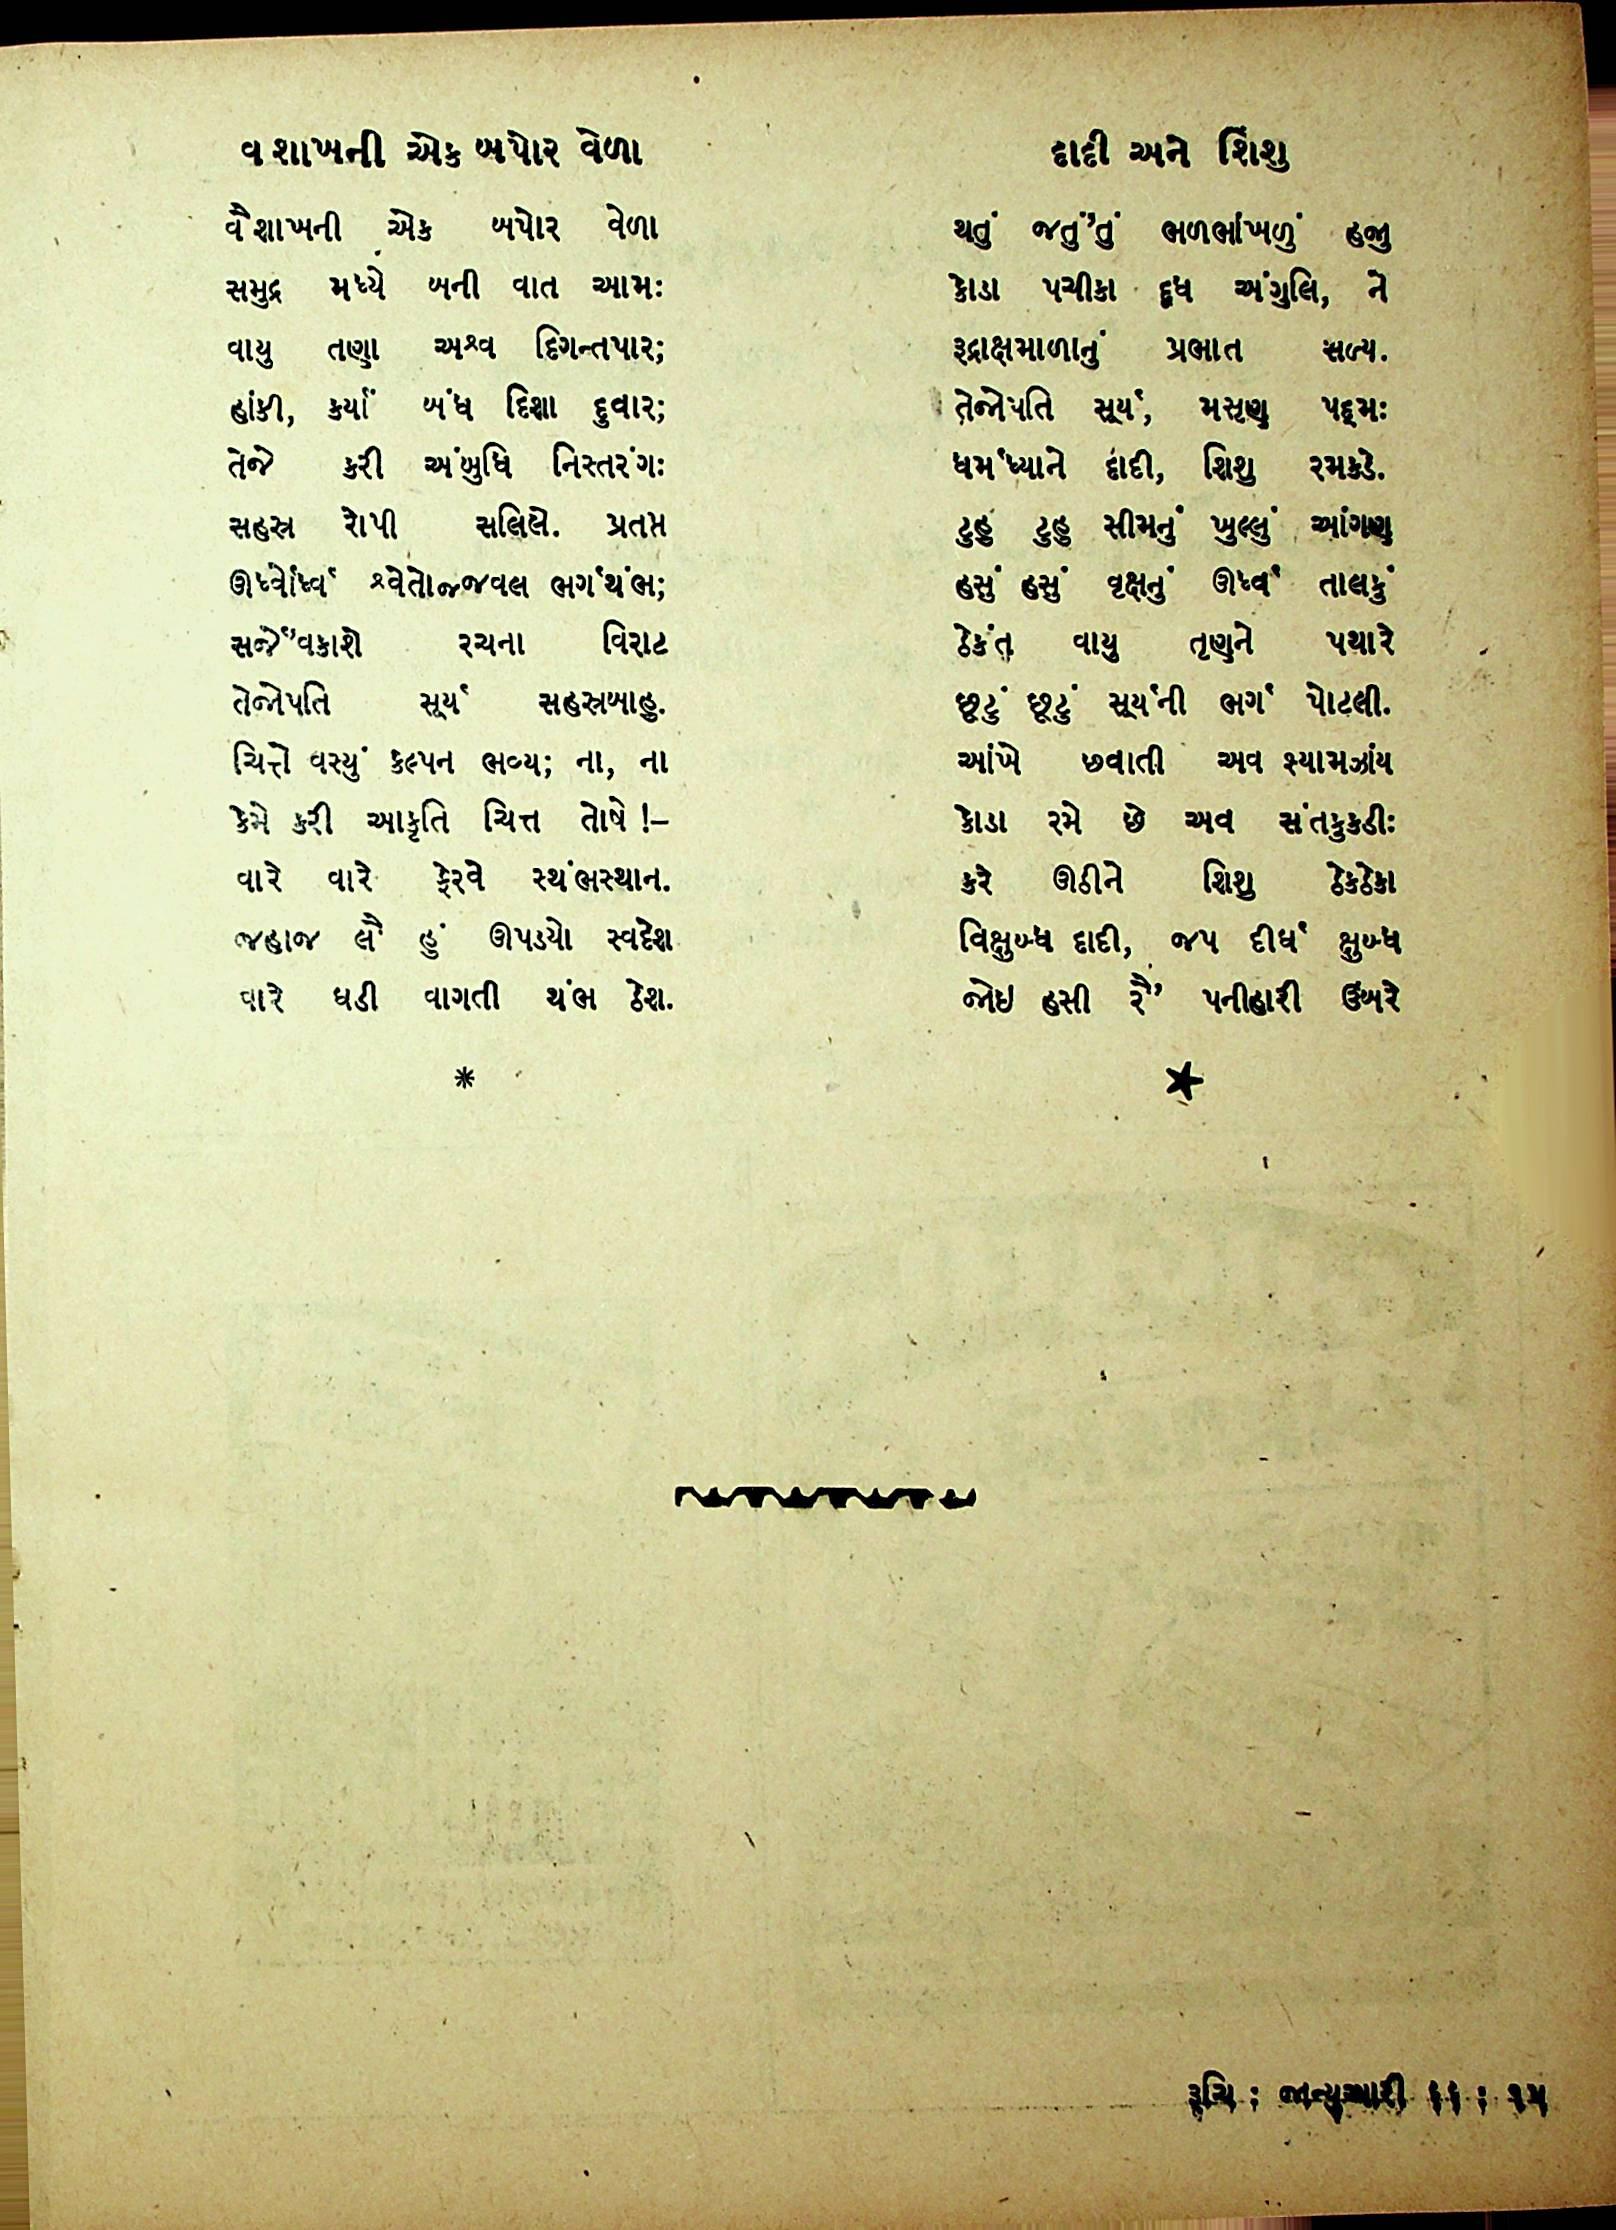 વશાખની એક બપોર વેળા
વૈશાખની એક બપોર વેળા
સમુદ્ર મધ્યે બની વાત આમઃ
વાયુ તણા અશ્વ દિગન્તપાર;
હાંકી, કર્યાં બંધ દિશા દુવાર;
તેજે કરી અંબુધિ નિસ્તરંગઃ
સહસ્ર રોપી સલિલે. પ્રતપ્ત
ઊર્ધ્વોર્ધ્વ શ્વેતોજ્જવલ ભર્ગથંભ;
સર્જે'વકાશે રચના વિરાટ
તેજોપતિ સૂર્ય સહસ્રબાહુ.
ચિત્તે વસ્યું કલ્પન ભવ્ય; ના, ના
કેમે કરી આકૃતિ ચિત્ત તોષે !–
વારે વારે ફેરવે સ્થંભસ્થાન.
જહાજ લૈ હું ઊપડયો સ્વદેશ
વારે ઘડી વાગતી થંભ ઠેશ.
*
દાદી અને શિશુ
થતું જતું'તું ભળભાંખળું હજી
કોડા પચીકા દૂધ અંગુલિ, ને
રૂદ્રાક્ષમાળાનું પ્રભાત સવ્ય.
તેજોપતિ સૂર્ય, મસૃણ પદ્મઃ
ધર્મધ્યાને દાદી, શિશુ રમકડે.
ટુહુ ટુહુ સીમનું ખુલ્લું આંગણ
હસું હસું વૃક્ષનું ઊર્ધ્વ તાલકું
ઠેકંત વાયુ તૃણને પથારે
છૂટું છૂટું સૂર્યની ભર્ગ પોટલી.
આંખે છવાતી અવ શ્યામઝાંય
કોડા રમે છે અવ સંતકુકડીઃ
કરે ઊઠીને શિશુ ઠેકઠેકા
વિક્ષુબ્ધ દાદી, જપ દીર્ઘ ક્ષુબ્ધ
જોઇ હસી રૈ' પનીહારી ઉંબરે
★
રૂચિ : જાન્યુઆરી ૬૬ : ૧૫